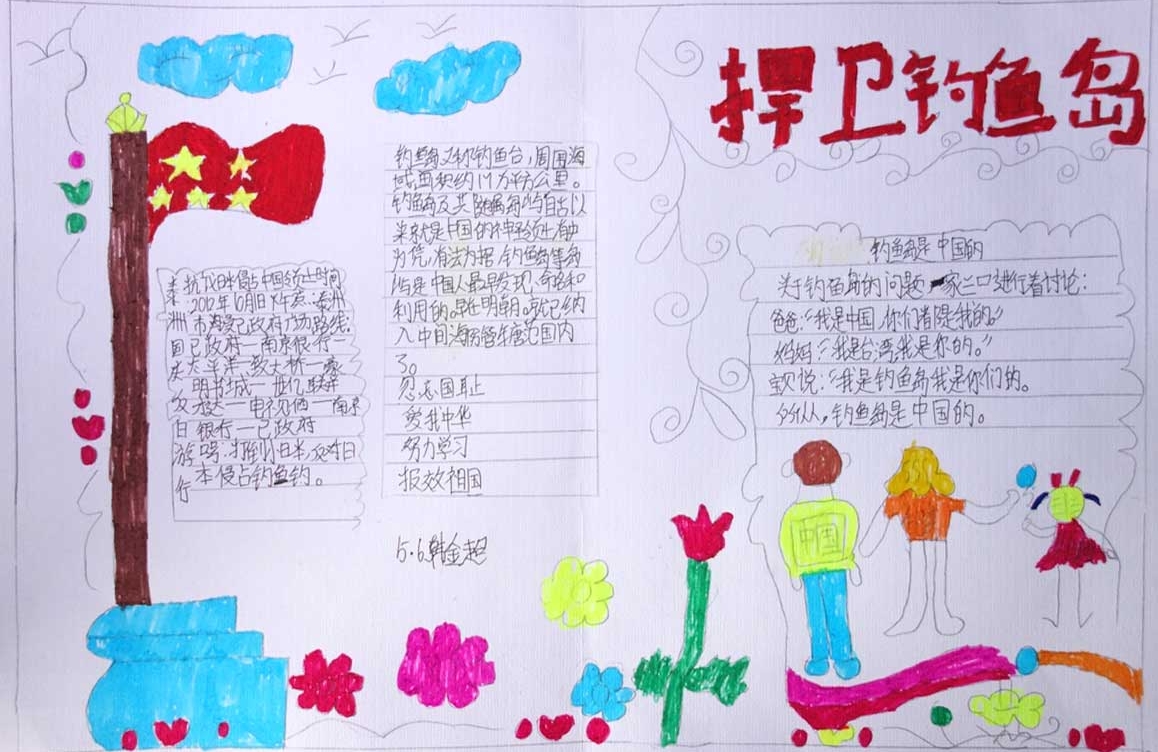 捍卫钓鱼岛
钓鱼岛又称钓鱼台，周围海
域面积约17万平方公里。
钓鱼岛及其附属岛屿自古以
来就是中国的神圣领土，有史
为凭，有法为据，钓鱼岛等岛
屿是中国人最早发现，命名和
利用的。早在明朝。就已纳
入中国海防管辖范围内
了。
勿忘国耻
爱我中华
努力学习
报效祖国
5.6.韩金超
抗议日本侵占中国领土时间
2012年10月1日
市 政府广场路线:
政府一南京银行一
太平洋一 大桥一
明书城一世纪联华
一电视
银行一 政府
打到小日本,反对日
本侵占钓鱼钓。
游
行
钓鱼岛是中国的
关于钓鱼岛的问题一家三口进行着讨论:
爸爸:“我是中国,你们都是我的。”
妈妈:“我是台湾,我是你的。”
宝贝说:“我是钓鱼岛我是你们的。
所以,钓鱼岛是中国的。
中国